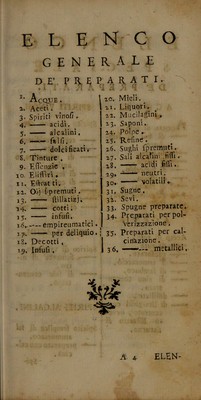 ELENCO
GENERALE
DE' PREPARATI.
1. ACQUE.
2. Aceti.
3. Spiriti vinosi.
4. —— acidi.
5. —— alcalini.
6. —— salsi.
7. —— dolcificati.
8. Tinture.
9. Essenzie.
10. Elissiri.
11. Estratti.
12. Olj spremuti.
13. —— stillatizj.
14. —— cotti.
15. —— infusi.
16. —— empireumatici.
17. —— per deliquio.
18. Decotti.
19. Infusi.
20. Mieli.
21. Liquori.
22. Mucilagini.
23. Saponi.
24. Polpe.
25. Resine.
26. Sughi spremuti.
27. Sali alcalini fissi.
28. —— acidi fissi.
29. —— neutri.
30. —— volatili.
31. Sugne.
32. Sevi.
33. Spugne preparate.
34. Preparati per pol-
verizzazione.
35. Preparati per cal-
cinazione.
36. —— metallici.
ELEN-